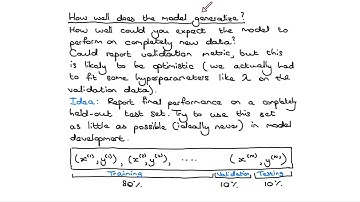 How well does the model generalise?
How well could you expect the model to
perform on completely new data?
Could report validation metric, but this
is likely to be optimistic (we actually had
to fit some hyperparameters like λ on the
validation data).
Idea: Report final performance on a completely
held-out test set. Try to use this set
as little as possible (ideally never) in model
development.
(x⁽¹⁾, y⁽¹⁾), (x⁽²⁾, y⁽²⁾), .... (x⁽ᴺ⁾, y⁽ᴺ⁾)
Training Validation Testing
80% 10% 10%